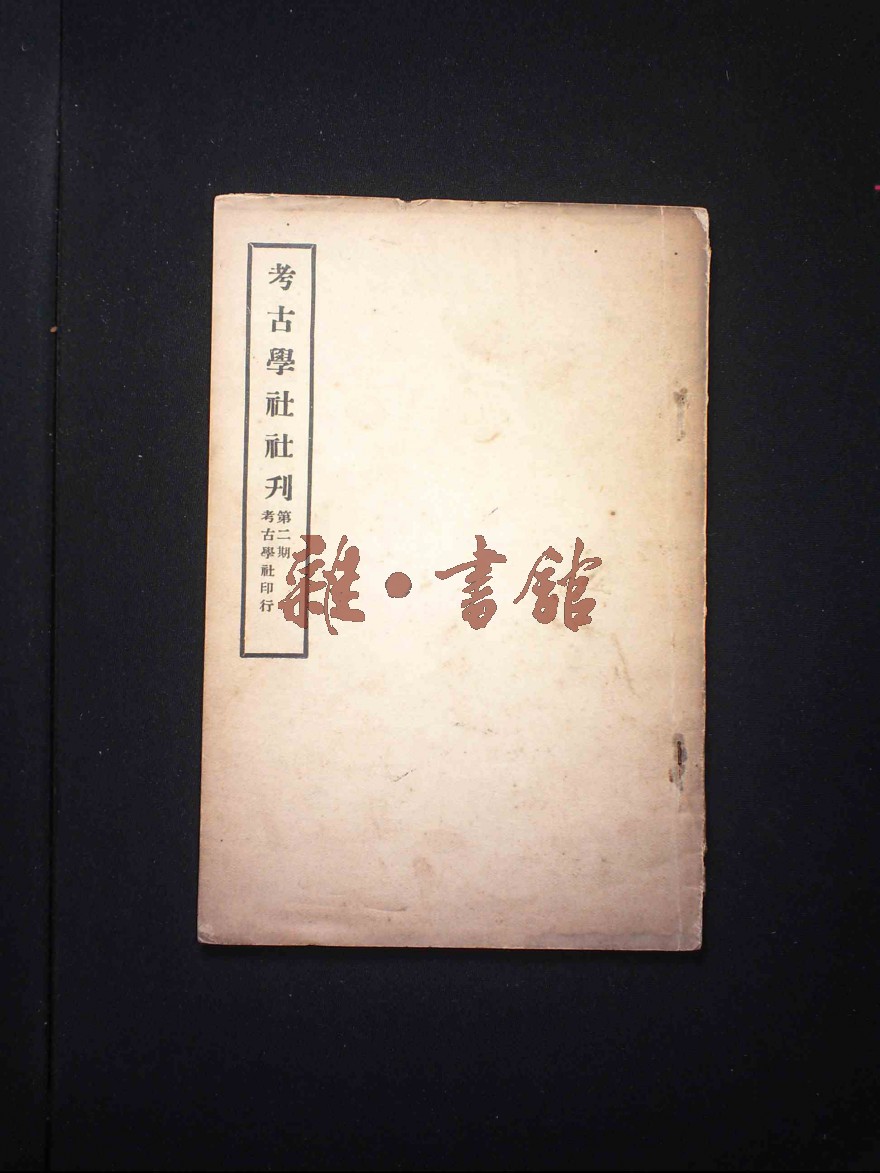 考古學社社刊
第二期
考古學社印行
雜·書館